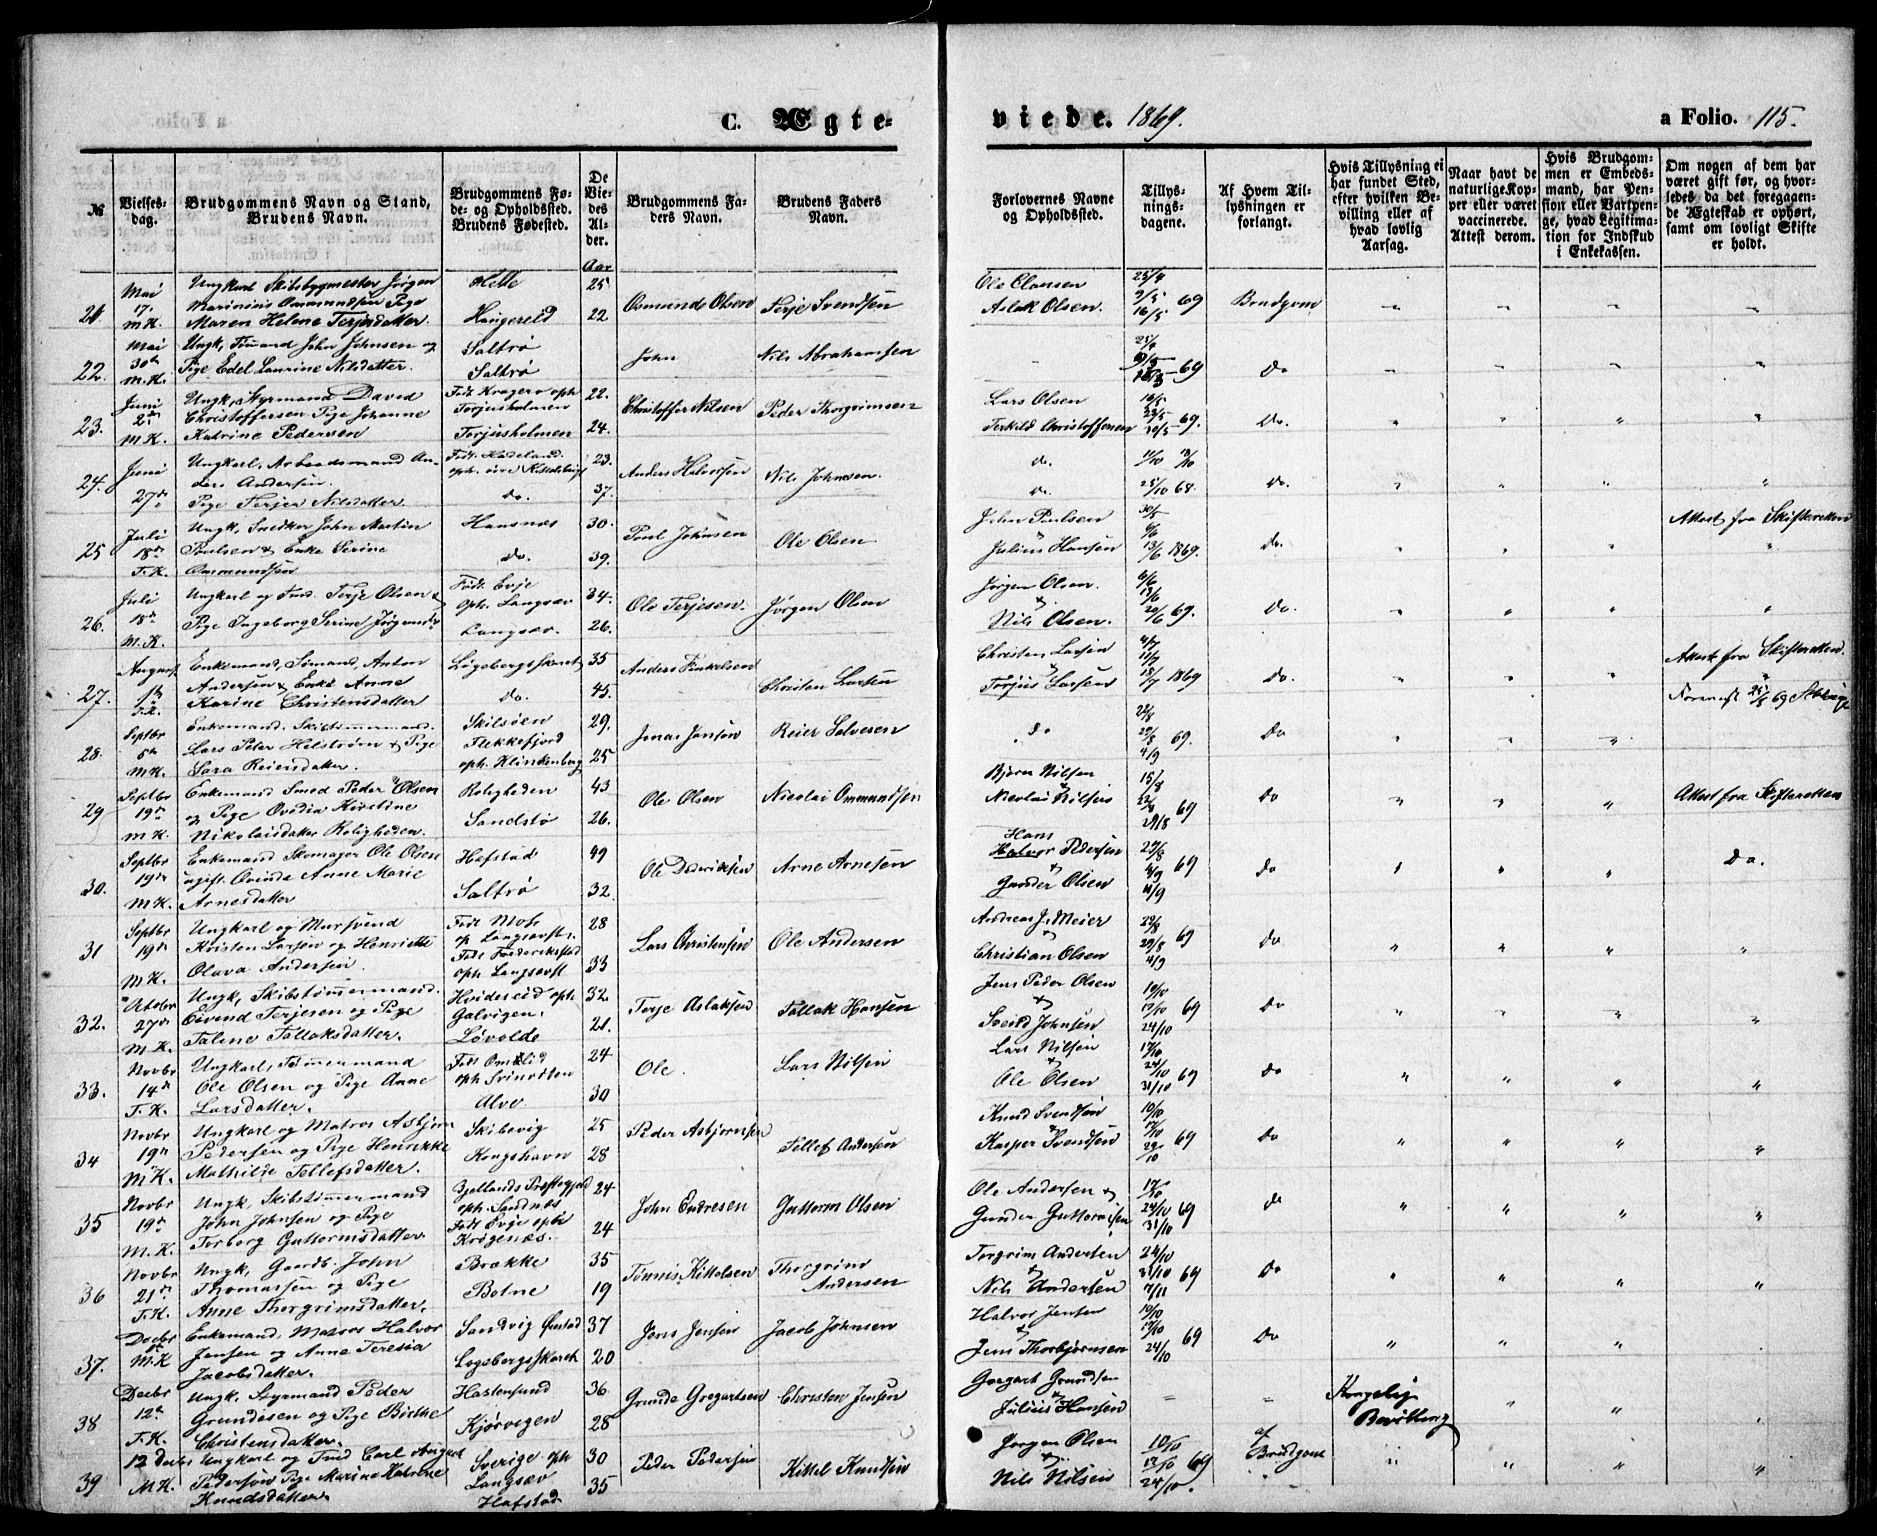 C. Ægte-
viede. 1869.
a Folio. 115.
№
Vielses-
dag.
Brudgommens Navn og Stand,
Brudens Navn.
Brudgommens Fø-
de- og Opholdssted.
Brudens Fødested.
De
Vie-
des
Al-
der.
Aar
Brudgommens Fa-
ders Navn.
Brudens Faders
Navn.
Forlovernes Navne
og Opholdssted.
Tillys-
nings-
dagene.
Af Hvem Til-
lysningen er
forlangt.
Hvis Tillysning ei
har fundet Sted,
efter hvilken Be-
villing eller af
hvad lovlig
Aarsag.
Naar havt de
naturlige Kop-
per eller været
vaccinerede.
Attest derom.
Hvis Brudgom-
men er Embeds-
mand, har Pen-
sion eller Vartpen-
ge, hvad Legitima-
tion for Indskud
i Enkekassen.
Om nogen af dem har
været gift før, og hvor-
ledes da det foregaaen-
de Ægteskab er ophørt,
samt om lovligt Skifte
er holdt.
21. Mai 17. M.K.
Ungkarl Skibsbygmester Jørgen
Marinius Ommundsen Pige
Maren Helene Terjesdatter.
Hille 25
Haugereid 22
Osmund Olsen
Terje Svendsen
Ole Claesen
Aslak Olsen.
25/4
9/5 69
16/5
Brudgom
22. Mai 30te M.K.
Ungk, Sømand John Johnsen og
Pige Edel Laurine Nilsdatter.
Saltrø
Saltrø
John
Nils Abrahamsen
25/4
69
Do
23. Juni 2den M.K.
Ungk, Styrmand David
Christoffersen Pige Johanne
Katrine Pedersen
Født Kragerø oph
Torjusholmen 22.
Torjusholmen 24.
Christoffer Nilsen
Peder Thorgrimsen
Lars Olsen
Terkild Christoffersen
16/5
23/5 69.
30/5
Do.
24. Juni 27de
Ungkarl, Arbeidsmand An-
ders Andersen.
Pige Terjer Nilsdatter
23.
Do. 37.
Anders Halvorsen
Nils Johnsen.
do.
Do.
11/10 18/10
25/10 68.
Do.
25 Juli 18de T.K.
Ungk, Snedker John Martin
Poulsen & Enke Serine
Ommundsen
Hansnæs 30.
Do. 39.
Poul Johnsen
Ole Olsen
John Poulsen
Julius Hansen
30/5
6/6
13/6 1869.
Do.
Attest fra Skifteretten
26. Juli 18de M.K.
Ungkarl og Tmd. Terje Olsen &
Pige Ingeborg Serine Jørgensdr
Født Evje
oph. Langsæv 34.
Langsæv. 26.
Ole Terjesen.
Jørgen Olsen
Jørgen Olsen.
&
Nils Olsen.
6/6
13/6
20/6 69.
Do.
27. August 1ste T.K.
Enkemand, Sømand, Anton
Andersen & Enke Anne
Karine Christensdatter
Løgebergskaret 35
Do. 45.
Anders Terkelsen
Christen Larsen
Christen Larsen
&
Torjus Larsen
4/7
11/7
18/7 1869
Do.
Attest fra Skifteretten
28. Septbr 5te M.K.
Enkemand. Skibstømmermand
Lars Peter Helstrøm & Pige
Sara Reiersdatter.
Skilsøen 29.
Flekkefjord
oph. Klinkenberg 25
Jonas Jonsen
Reier Salvesen
do
22/8
29/8 69.
4/9
Do
29 Septbr 19de M.K.
Enkemand Smed Peder Olsen
og Pige Ovedia Kirstine
Nikolaisdatter Roligheden.
Roligheden 43
Sandstø 26.
Ole Olsen
Nicolai Ommundsen
Bjørn Nilsen
Nicolai Nilsen
15/8
22/8 69
29/8
Do
Attest fra Skifteretten
30. Septbr 19de M.K.
Enkemand Skomager Ole Olsen
ugift Qvinde Anne Marie
Arnesdatter
Hafstad 49
Saltrø 32.
Ole Diderichsen
Arne Arnesen
Hans
Halvor Pedersen
&
Gunder Olsen
29/8
4/9 69
11/9
Do
Do.
31 Septbr 19de M.K.
Ungkarl og Mursvend
Kristen Larsen og Henriette
Olava Andersen
Født Moss
op. Langsævst. 28
Født Frederiksstad
oph. Langsævst 33
Lars Christensen
Ole Andersen
Andreas J. Meier
&
Christian Olsen
22/8
29/8 69
4/9
Do
32. Octobr 27de M.K.
Ungk, Skibstømmermand.
Eivend Terjesen og Pige
Taline Tallaksdatter.
Hvideseid oph. 32.
Galvigen.
Løvolde 21.
Terje Aslaksen
Tallak Hansen
Jens Peder Olsen
&
Sveind Johnsen
10/10
17/10 69
24/10
Do
33. Novbr 14de T.K.
Ungkarl, Tømmermand
Ole Olsen og Pige Anne
Larsdatter.
Født Omlid 24
oph Svinodden
Alve. 30
Ole.
Lars Nilsen
Lars Nilsen
&
Ole Olsen
17/10
24/10
31/10 69
Do
34 Novbr 19de M.K.
Ungkarl og Matros Asbjørn
Pedersen og Pige Henrikke
Mathilde Tellefsdatter.
Skibevig 25
Kongshavn 28
Peder Asbjørnsen
Tellef Andersen
Knud Svendsen
&
Kasper Svendsen
10/10
17/10 69
24/10
Do
35 Novbr 19de M.K.
Ungk, Skibstømmermand
John Johnsen og Pige
Torborg Guttormsdatter.
Bjellands Præstegjeld 24
oph. Sandnæs
Født Evje oph 24
Krøgenæs.
John Endresen
Guttorm Olsen
Ole Andersen &
Gunder Guttormsen
17/10
24/10 69
31/10
Do
36 Novbr 21de T.K.
Ungk, Gaardb. John
Thomassen og Pige
Anne Thorgrimsdatter.
Brække 35
Botne 19
Tønnis Kittelsen
Thorgrim
Andersen
Torgrim Andersen
&
Nils Andersen
24/10
31/10 69
7/11
Do
37. Decbr M.K
Enkemand. Matros Halvor
Jensen og Anne Teresia
Jacobsdatter.
Sandvig Østad 37
Løgebergskaret 20
Jens Jensen
Jacob Johnsen
Halvor Jensen
&
Jens Thorbjørnsen
10/10
17/10 69
24/10
Do
38 Decbr 12te T.K.
Ungk. Styrmand Peder
Grundesen og Pige Birthe
Christensdatter.
Hastensund 36
Kjørvigen 28
Grunde Gregartsen
Christen Jensen
Gregart Grundsen
&
Julius Hansen
Kongelig
Bevilling
39 12 Decbr M.K.
Ungkarl og Tmd Carl August
Pedersen Pige Marine Katrine
Knudsdatter.
Sverige oph 30
Langsæv
Hafstad 35
Peder Pedersen
Kittel Knudsen
Jørgen Olsen
&
Nils Nilsen
10/10
17/10 69
24/10
af
Brudgom